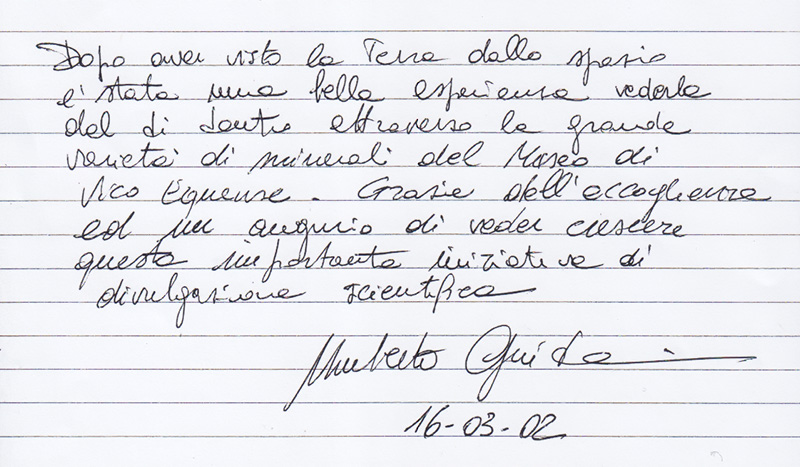 Dopo aver visto la Terra dallo spazio
e' stata una bella esperienza vederla
dal di dentro attraverso la grande
varietà di minerali del Museo di
Vico Equense. Grazie dell'accoglienza
ed un augurio di veder crescere
questa importante iniziativa di
divulgazione scientifica
Umberto Guidoni
16-03-02